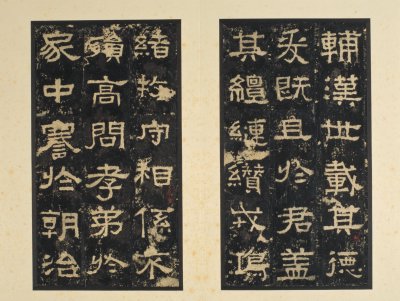 輔漢世載其德
爰既且於君蓋
其繵縺纘戎鴻
緒牧守相係不
殞高問孝弟於
家中謇於朝治